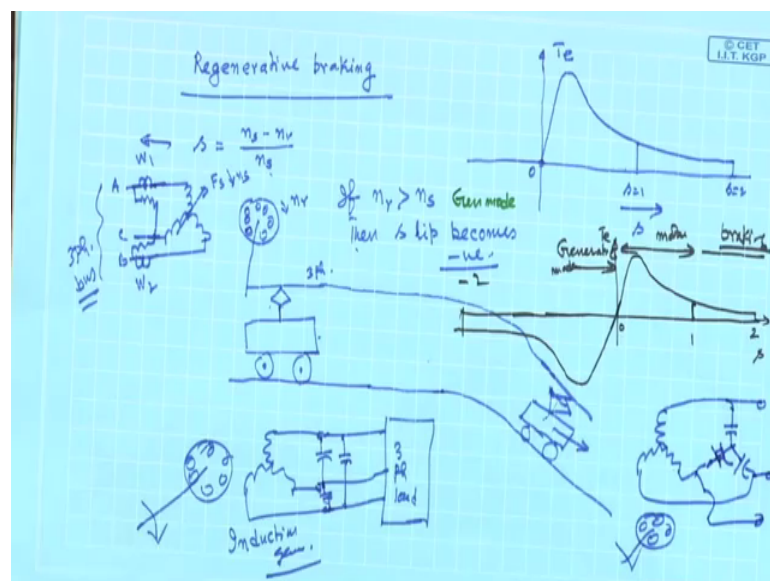 © CET
I.I.T. KGP
Regenerative braking
Te
0
s=1
s=2
s
s = ns - nr
ns
W1
A
Fs
ns
C
B
W2
3ph.
bus
nr
If nr > ns Gen mode
then slip becomes
-ve.
3ph.
Te
Generating
mode
motor
braking
-2
0
1
2
s
3
ph
load
Induction
gen.